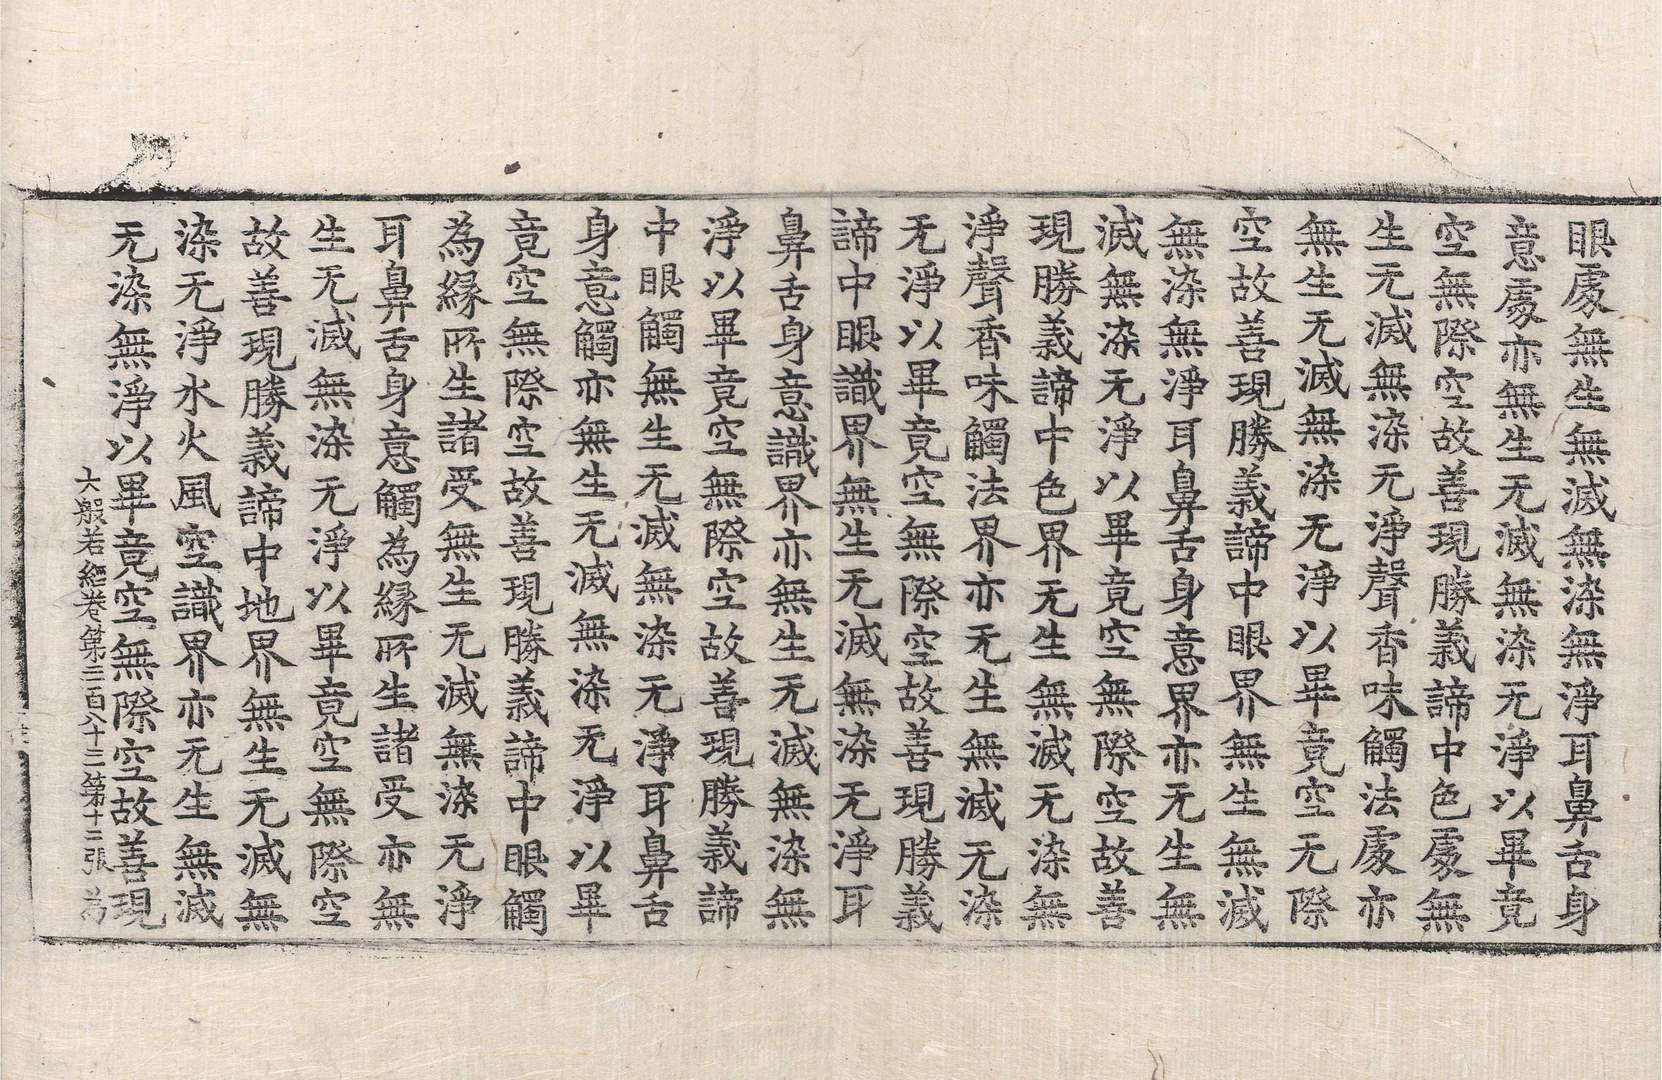 眼處無生無滅無染無淨耳鼻舌身
意處亦無生无滅無染无淨以畢竟
空無際空故善現勝義諦中色處無
生无滅無染无淨聲香味觸法處亦
無生无滅無染无淨以畢竟空无際
空故善現勝義諦中眼界無生無滅
無染無淨耳鼻舌身意界亦无生無
滅無染无淨以畢竟空無際空故善
現勝義諦中色界无生無滅无染無
淨聲香味觸法界亦无生無滅无染
无淨以畢竟空無際空故善現勝義
諦中眼識界無生无滅無染无淨耳
鼻舌身意識界亦無生无滅無染無
淨以畢竟空無際空故善現勝義諦
中眼觸無生无滅無染无淨耳鼻舌
身意觸亦無生无滅無染无淨以畢
竟空無際空故善現勝義諦中眼觸
為縁所生諸受無生无滅無染无淨
耳鼻舌身意觸為縁所生諸受亦無
生无滅無染无淨以畢竟空無際空
故善現勝義諦中地界無生无滅無
染无淨水火風空識界亦无生無滅
无染無淨以畢竟空無際空故善現
大般若經卷第三百八十三第十二張 為